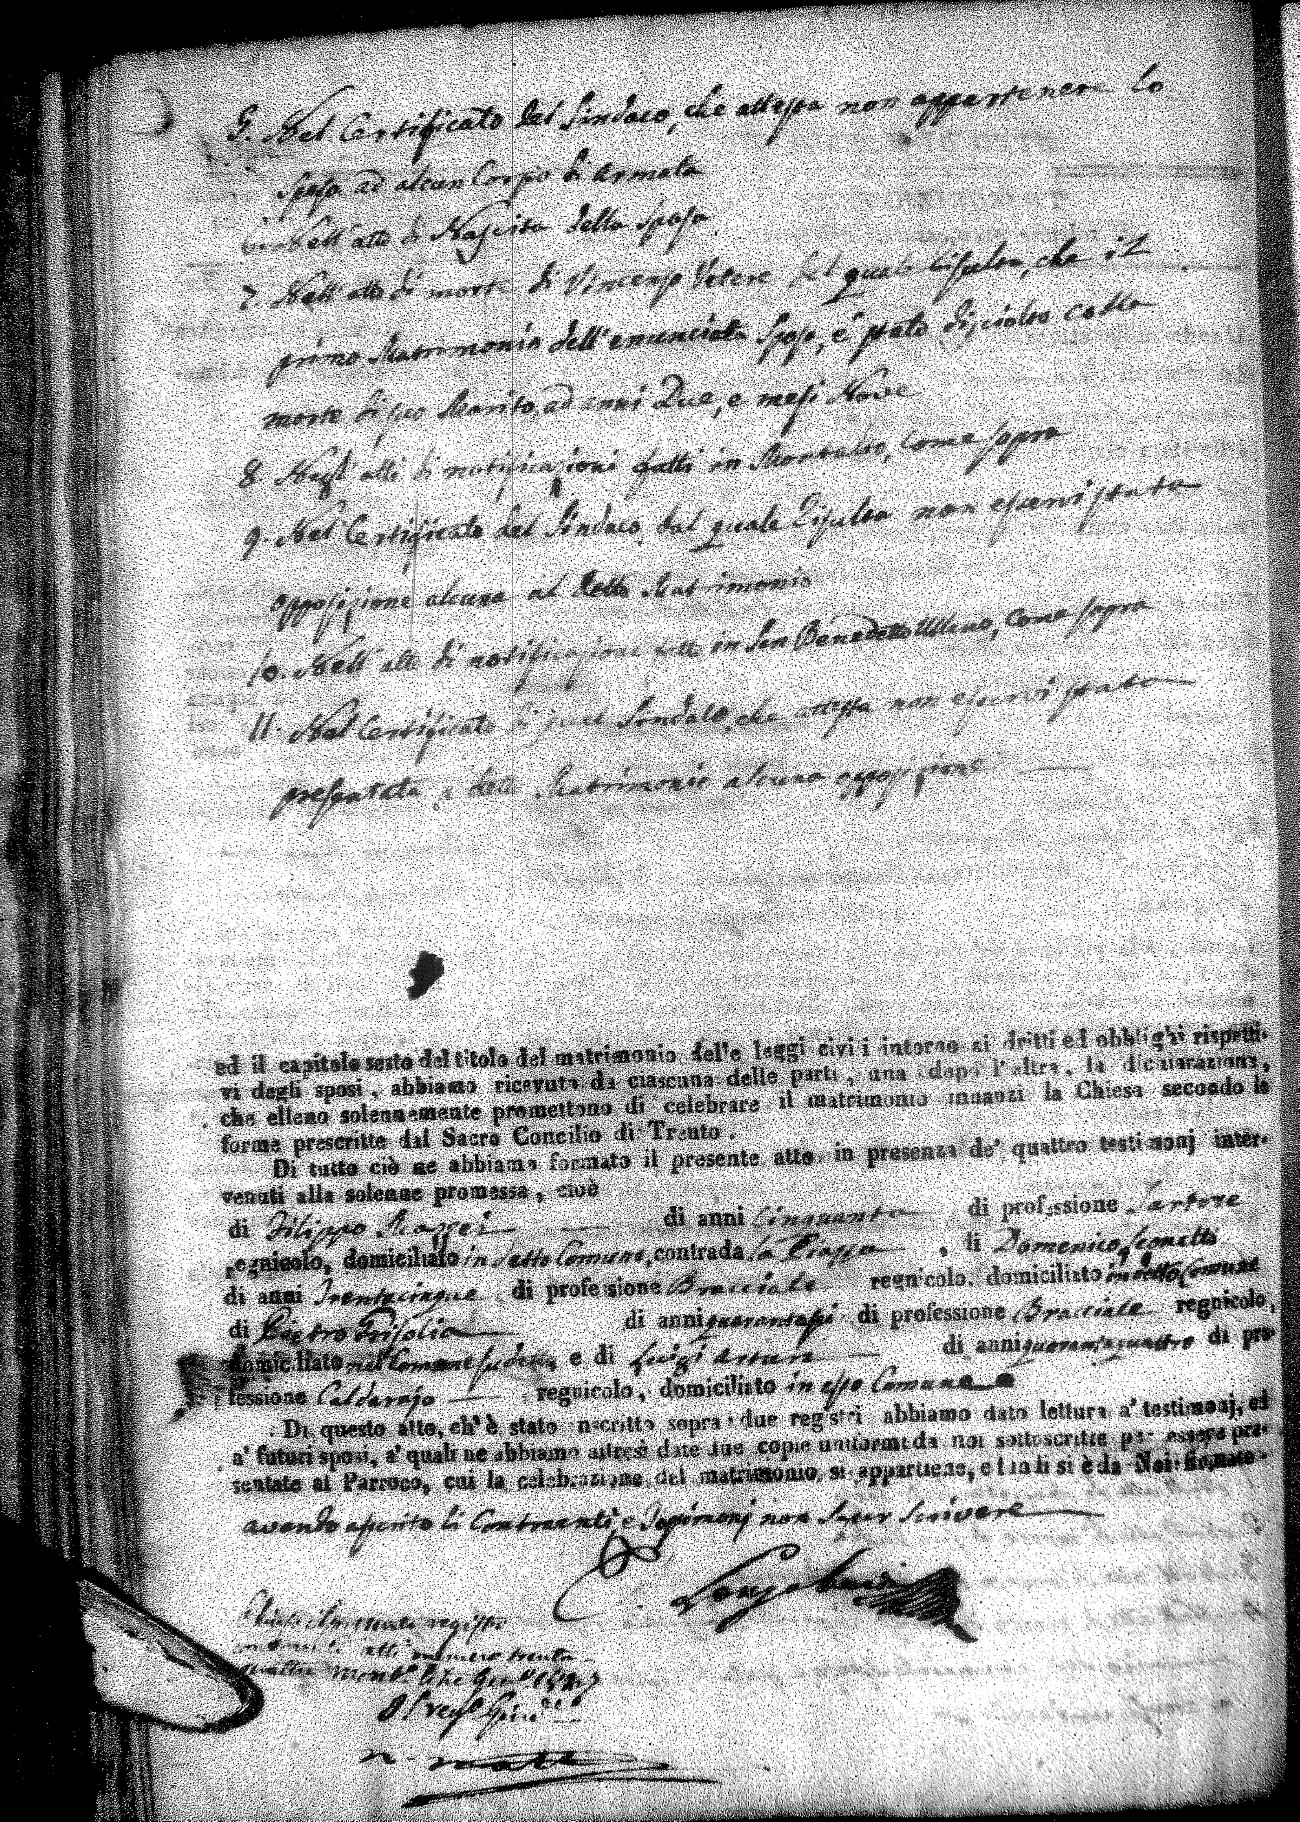 5. Nel Certificato del Sindaco, che attessa non appartenere lo
sposo ad alcun Corpo di armata
Nell' atto di Nascita della sposa
7 Nell' atto di morte di Vincenzo Vetere dal quale risulta, che il
primo Matrimonio dell' enunciata Sposa, è stato disciolto colla
morte di suo Marito, ad anni Due, e mesi Nove
8 Negl' atti di notificazioni fatti in Montalto, come sopra
9. Nel Certificato del Sindaco, dal quale risulta non esservi stata
opposizione alcuna al detto Matrimonio
10. Nell' atti di notificazione fatti in San Benedetto Ullano, come sopra
11. Nel Certificato di quel Sindaco, che attessa non esservi stata
presentata a detto Matrimonio alcuna opposizione
ed il capitolo sesto del titolo del matrimonio delle leggi civili intorno ai dritti ed obblighi rispetti-
vi degli sposi, abbiamo ricevuta da ciascuna delle parti, una dopo l'altra, la dichiarazione,
che elleno solennemente promettono di celebrare il matrimonio innanzi la Chiesa secondo le
forme prescritte dal Sacro Concilio di Trento.
Di tutto ciò ne abbiamo formato il presente atto in presenza de' quattro testimonj inter-
venuti alla solenne promessa, cioè
di Filippo di anni Cinquanta di professione Sartore
regnicolo, domiciliato in detto Comune, contrada la Piazza, di Domenico
di anni Trentacinque di professione Bracciale regnicolo, domiciliato in detto Comune
di Pietro Grisolia di anni quarantasei di professione Bracciale regnicolo,
domiciliato nel Comune sudetto, e di Luigi Artura di anni quarantaquattro di pro-
fessione Caldarajo regnicolo, domiciliato in esso Comune
Di questo atto, ch' è stato inscritto sopra i due registri abbiamo dato lettura a' testimonj, ed
a' futuri sposi, a' quali ne abbiamo altresì date due copie uniformi da noi sottoscritte per essere pre-
sentate al Parroco, cui la celebrazione del matrimonio si appartiene, e indi si è da Noi firmato
avendo asserito li Contraenti, e Testimonj non saper scrivere
registro
atti numero trenta
quattro
Il reg. Giud.